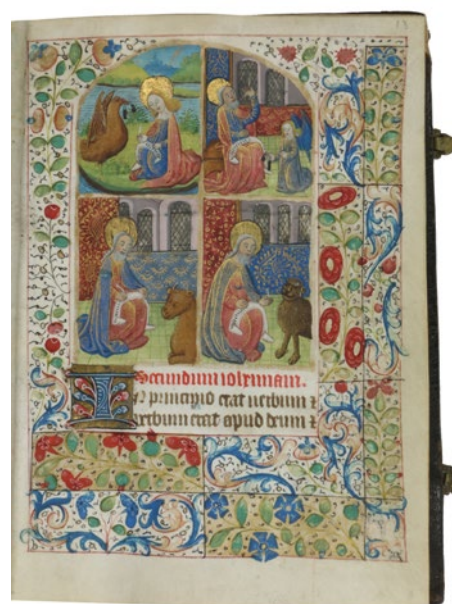 13
Secundum iohannem.
IN principio erat uerbum ⁊
uerbum erat apud deum ⁊